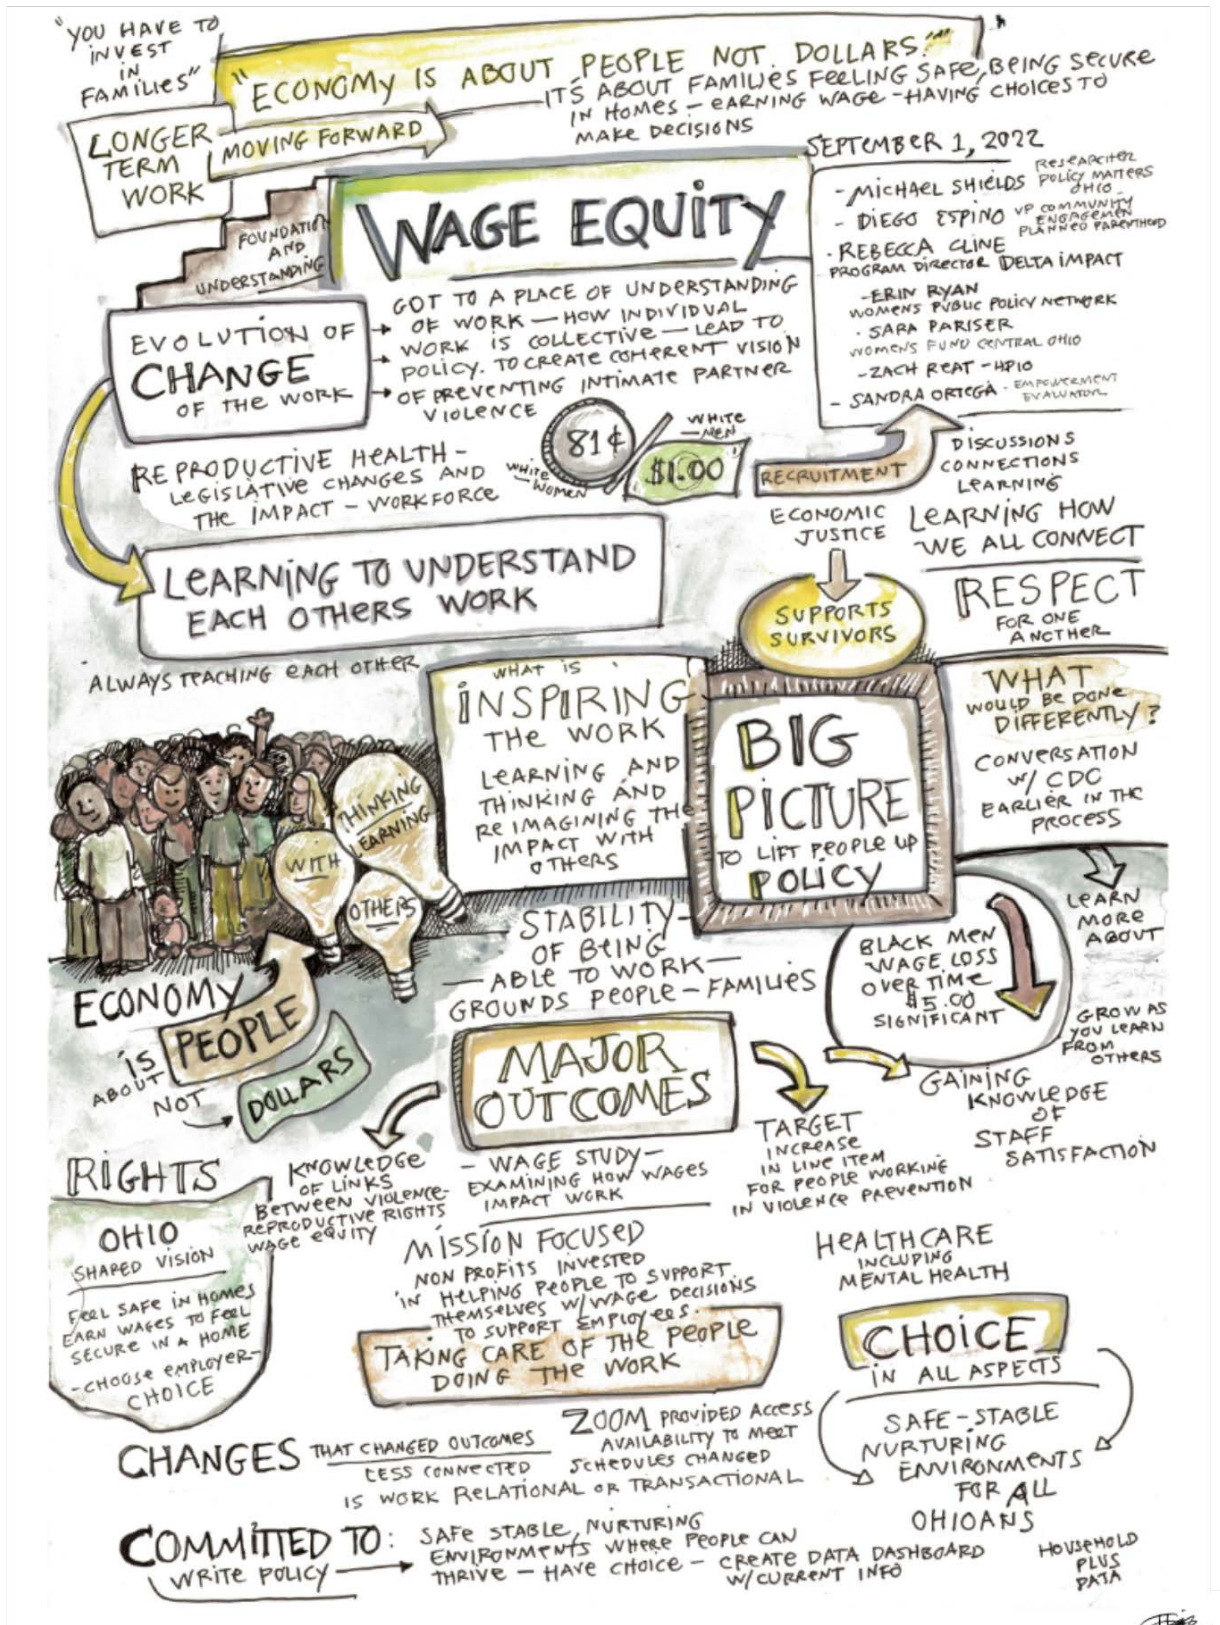 "YOU HAVE TO
INVEST
IN
FAMILIES"
"ECONOMY IS ABOUT PEOPLE NOT DOLLARS."
IT'S ABOUT FAMILIES FEELING SAFE, BEING SECURE
IN HOMES - EARNING WAGE - HAVING CHOICES TO
MAKE DECISIONS
LONGER
TERM
WORK
MOVING FORWARD
SEPTEMBER 1, 2022
FOUNDATION
AND
UNDERSTANDING
WAGE EQUITY
- MICHAEL SHIELDS RESEARCHER
POLICY MATTERS
OHIO
- DIEGO ESPINO VP COMMUNITY
ENGAGEMEN
PLANNED PARENTHOOD
- REBECCA CLINE
PROGRAM DIRECTOR DELTA IMPACT
- ERIN RYAN
WOMENS PUBLIC POLICY NETWORK
- SARA PARISER
WOMENS FUND CENTRAL OHIO
- ZACH REAT - HPIO
- SANDRA ORTEGA - EMPOWERMENT
EVALUATOR
EVOLUTION OF
CHANGE
OF THE WORK
GOT TO A PLACE OF UNDERSTANDING
OF WORK - HOW INDIVIDUAL
WORK IS COLLECTIVE - LEAD TO
POLICY. TO CREATE COHERENT VISION
OF PREVENTING INTIMATE PARTNER
VIOLENCE
REPRODUCTIVE HEALTH -
LEGISLATIVE CHANGES AND
THE IMPACT - WORKFORCE
WHITE
WOMEN
81¢
WHITE
MEN
$1.00
RECRUITMENT
DISCUSSIONS
CONNECTIONS
LEARNING
ECONOMIC
JUSTICE
LEARNING HOW
WE ALL CONNECT
LEARNING TO UNDERSTAND
EACH OTHERS WORK
SUPPORTS
SURVIVORS
RESPECT
FOR ONE
ANOTHER
ALWAYS TEACHING EACH OTHER
WHAT IS
INSPIRING
THE WORK
LEARNING AND
THINKING AND
REIMAGINING THE
IMPACT WITH
OTHERS
BIG
PICTURE
TO LIFT PEOPLE UP
POLICY
WHAT
WOULD BE DONE
DIFFERENTLY?
CONVERSATION
W/ CDC
EARLIER IN THE
PROCESS
THINKING
LEARNING
WITH
OTHERS
LEARN
MORE
ABOUT
STABILITY -
OF BEING
- ABLE TO WORK -
GROUNDS PEOPLE - FAMILIES
BLACK MEN
WAGE LOSS
OVER TIME
$5.00
SIGNIFICANT
GROW AS
YOU LEARN
FROM
OTHERS
ECONOMY
IS
ABOUT
PEOPLE
NOT
DOLLARS
MAJOR
OUTCOMES
GAINING
KNOWLEDGE
OF
STAFF
SATISFACTION
TARGET
INCREASE
IN LINE ITEM
FOR PEOPLE WORKING
IN VIOLENCE PREVENTION
KNOWLEDGE
OF LINKS
BETWEEN VIOLENCE-
REPRODUCTIVE RIGHTS
WAGE EQUITY
- WAGE STUDY -
EXAMINING HOW WAGES
IMPACT WORK
RIGHTS
OHIO
SHARED VISION
FEEL SAFE IN HOMES
EARN WAGES TO FEEL
SECURE IN A HOME
- CHOOSE EMPLOYER-
CHOICE
MISSION FOCUSED
NON PROFITS INVESTED
IN HELPING PEOPLE TO SUPPORT
THEMSELVES W/ WAGE DECISIONS
TO SUPPORT EMPLOYEES.
TAKING CARE OF THE PEOPLE
DOING THE WORK
HEALTHCARE
INCLUDING
MENTAL HEALTH
CHOICE
IN ALL ASPECTS
SAFE - STABLE
NURTURING
ENVIRONMENTS
FOR ALL
OHIOANS
CHANGES THAT CHANGED OUTCOMES
LESS CONNECTED
IS WORK RELATIONAL OR TRANSACTIONAL
ZOOM PROVIDED ACCESS
AVAILABILITY TO MEET
SCHEDULES CHANGED
COMMITTED TO:
WRITE POLICY
SAFE STABLE, NURTURING
ENVIRONMENTS WHERE PEOPLE CAN
THRIVE - HAVE CHOICE - CREATE DATA DASHBOARD
W/CURRENT INFO
HOUSEHOLD
PLUS
DATA